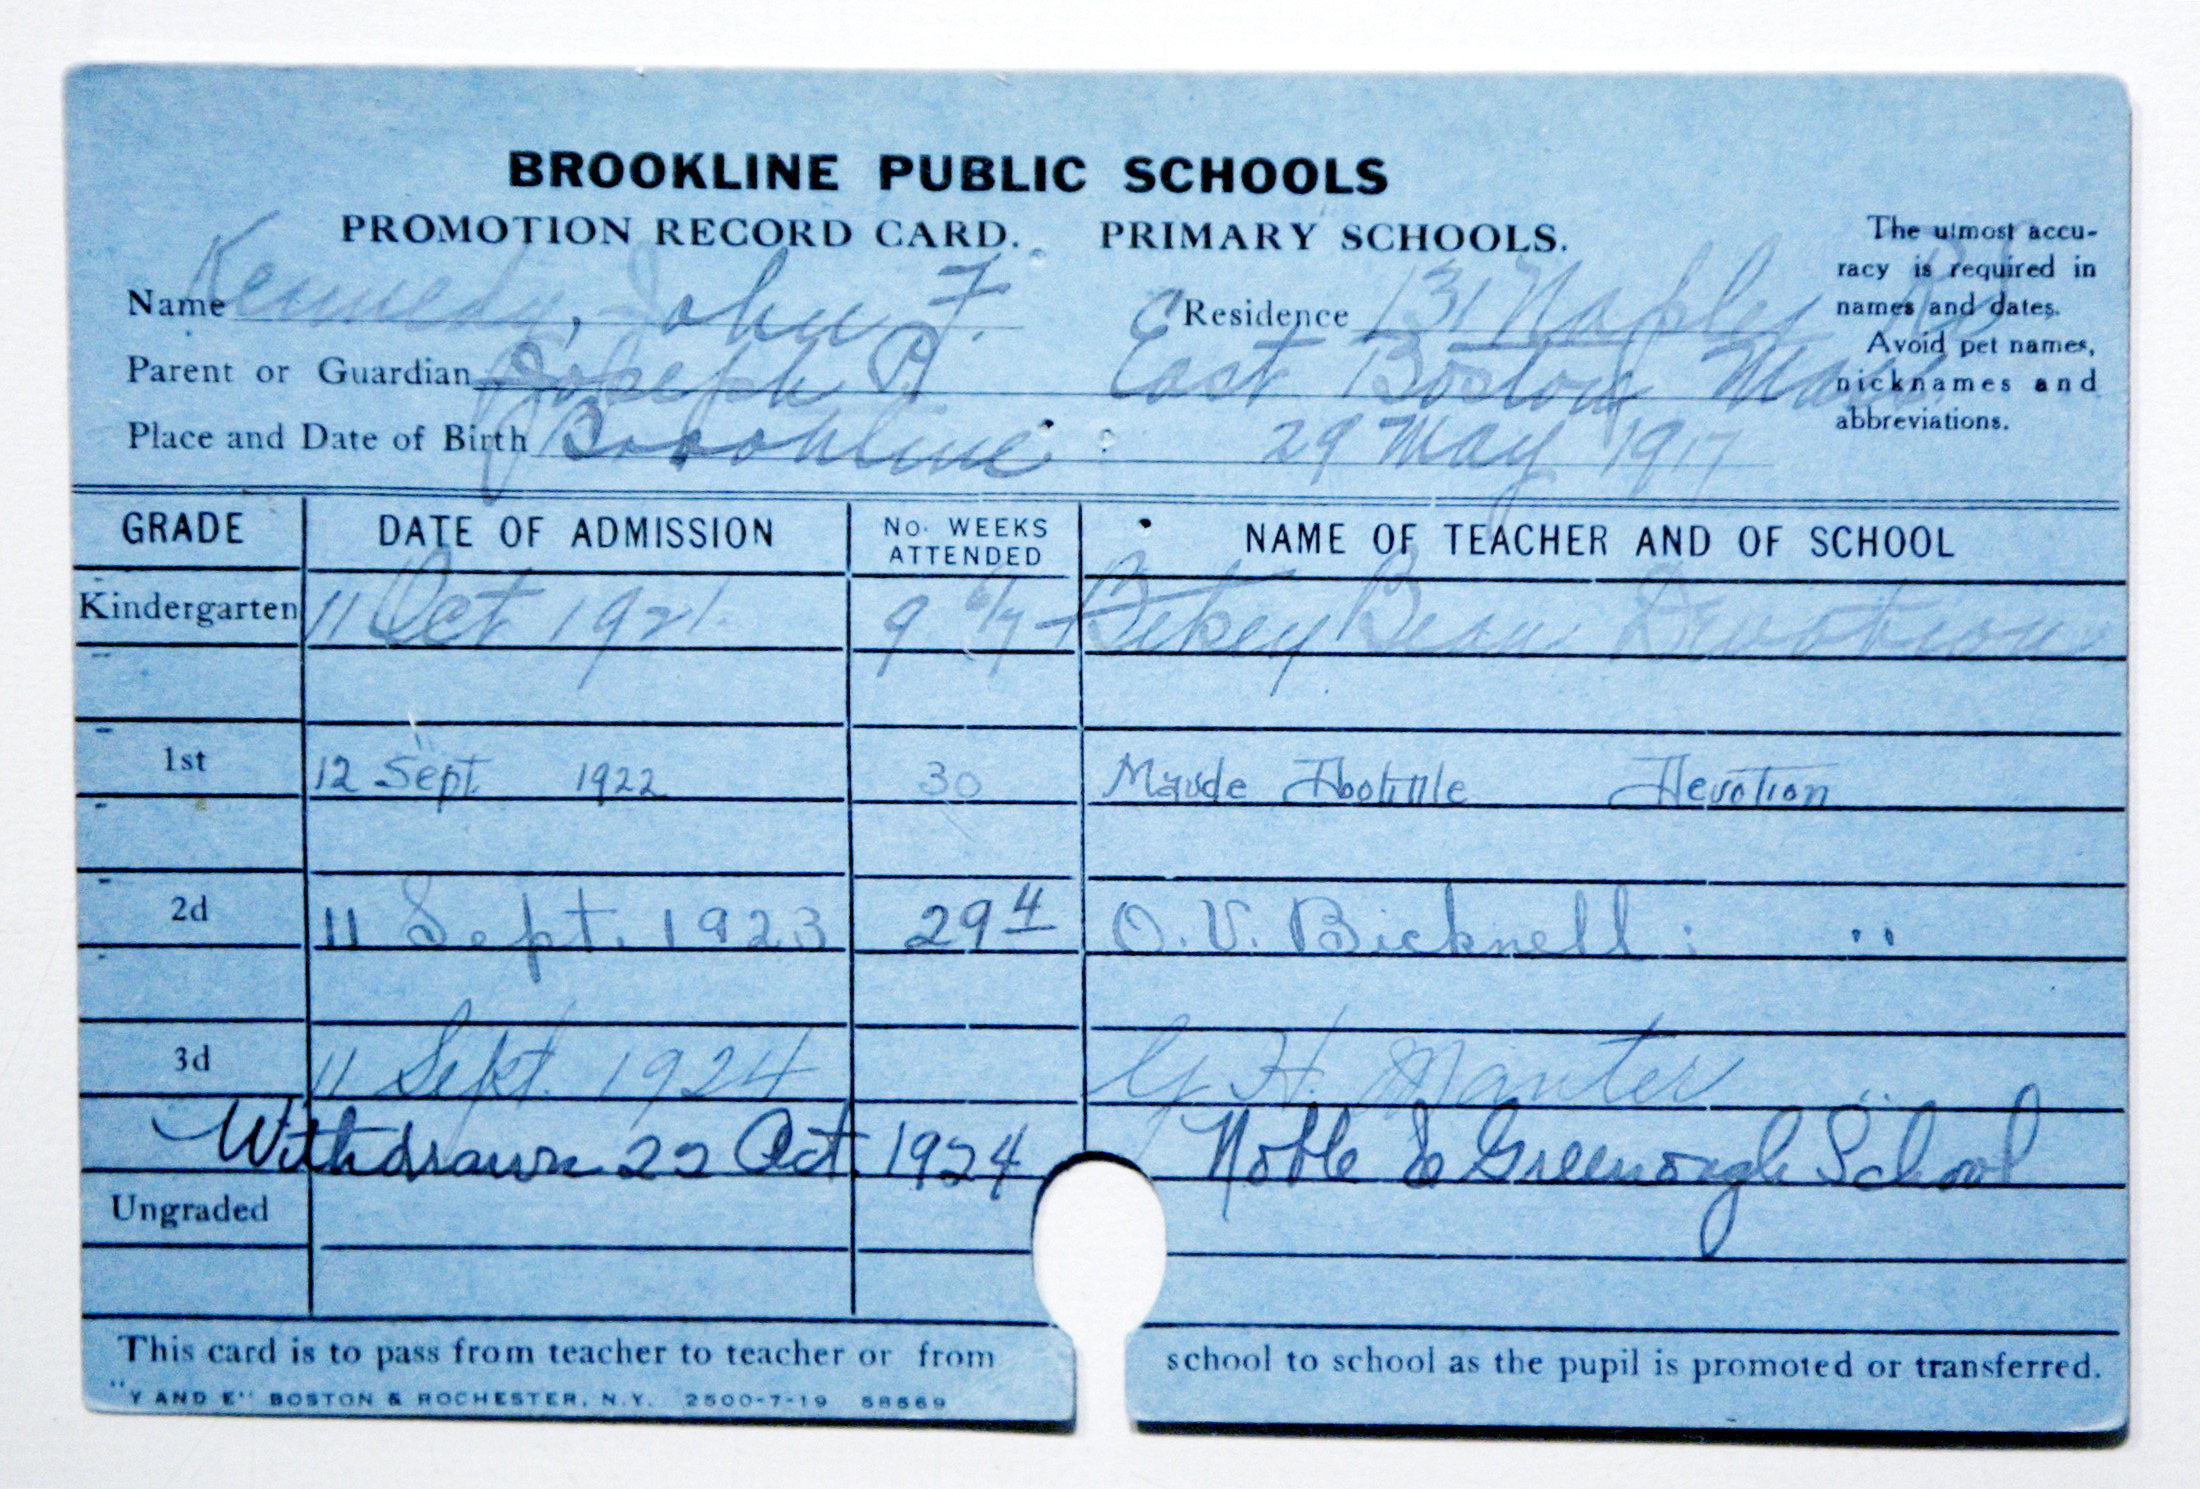 BROOKLINE PUBLIC SCHOOLS
PROMOTION RECORD CARD. PRIMARY SCHOOLS.
The utmost accu-
racy is required in
names and dates.
Avoid pet names,
nicknames and
abbreviations.
Name Kennedy, John F. Residence 131 Naples Rd
Parent or Guardian Joseph P. East Boston Mass.
Place and Date of Birth Brookline 29 May 1917
GRADE DATE OF ADMISSION No. WEEKS ATTENDED NAME OF TEACHER AND OF SCHOOL
Kindergarten 11 Oct 1921 9 Devotion
1st 12 Sept. 1922 30 Maude Devotion
2d 11 Sept. 1923 29 4 O. V. Bicknell : "
3d 11 Sept. 1924 H. Manter "
Withdrawn 22 Oct. 1924 Noble & Greenough School
Ungraded
This card is to pass from teacher to teacher or from school to school as the pupil is promoted or transferred.
"Y AND E" BOSTON & ROCHESTER, N.Y. 2500-7-19 58569